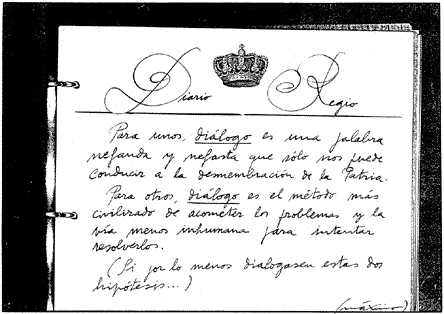 Diario Regio
Para unos, diálogo es una palabra
nefanda y nefasta que sólo nos puede
conducir a la desmembración de la Patria.
Para otros, diálogo es el método más
civilizado de acometer los problemas y la
vía menos inhumana para intentar
resolverlos.
(Si por lo menos dialogasen estas dos
hipótesis...)
(máximo)